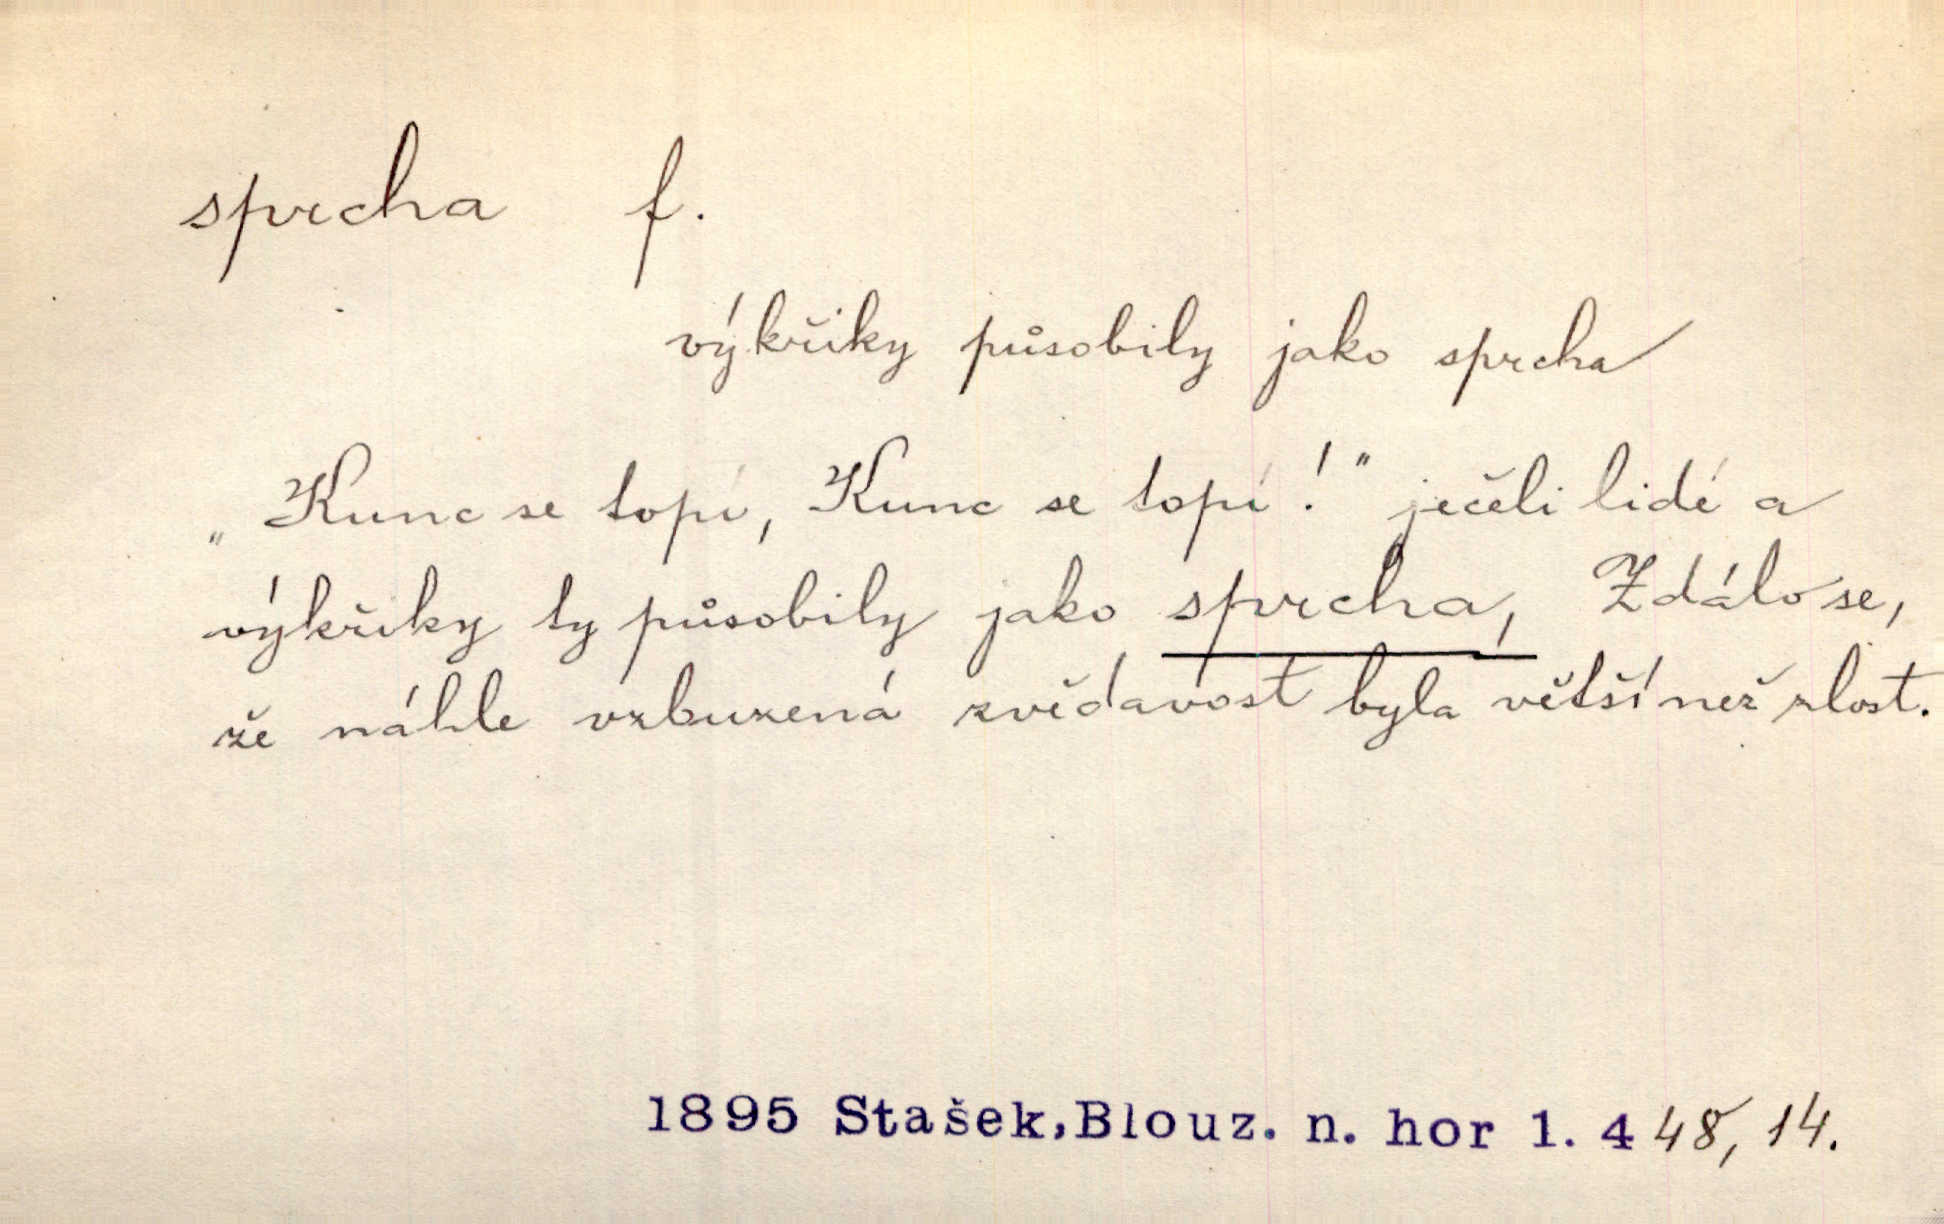 sprcha f.
výkřiky působily jako sprcha
„Kunc se topí, Kunc se topí!" ječeli lidé a
výkřiky ty působily jako sprcha, Zdálo se,
že náhle vzbuzená zvědavost byla větší než zlost.
1895 Stašek, Blouz. n. hor 1. 448, 14.